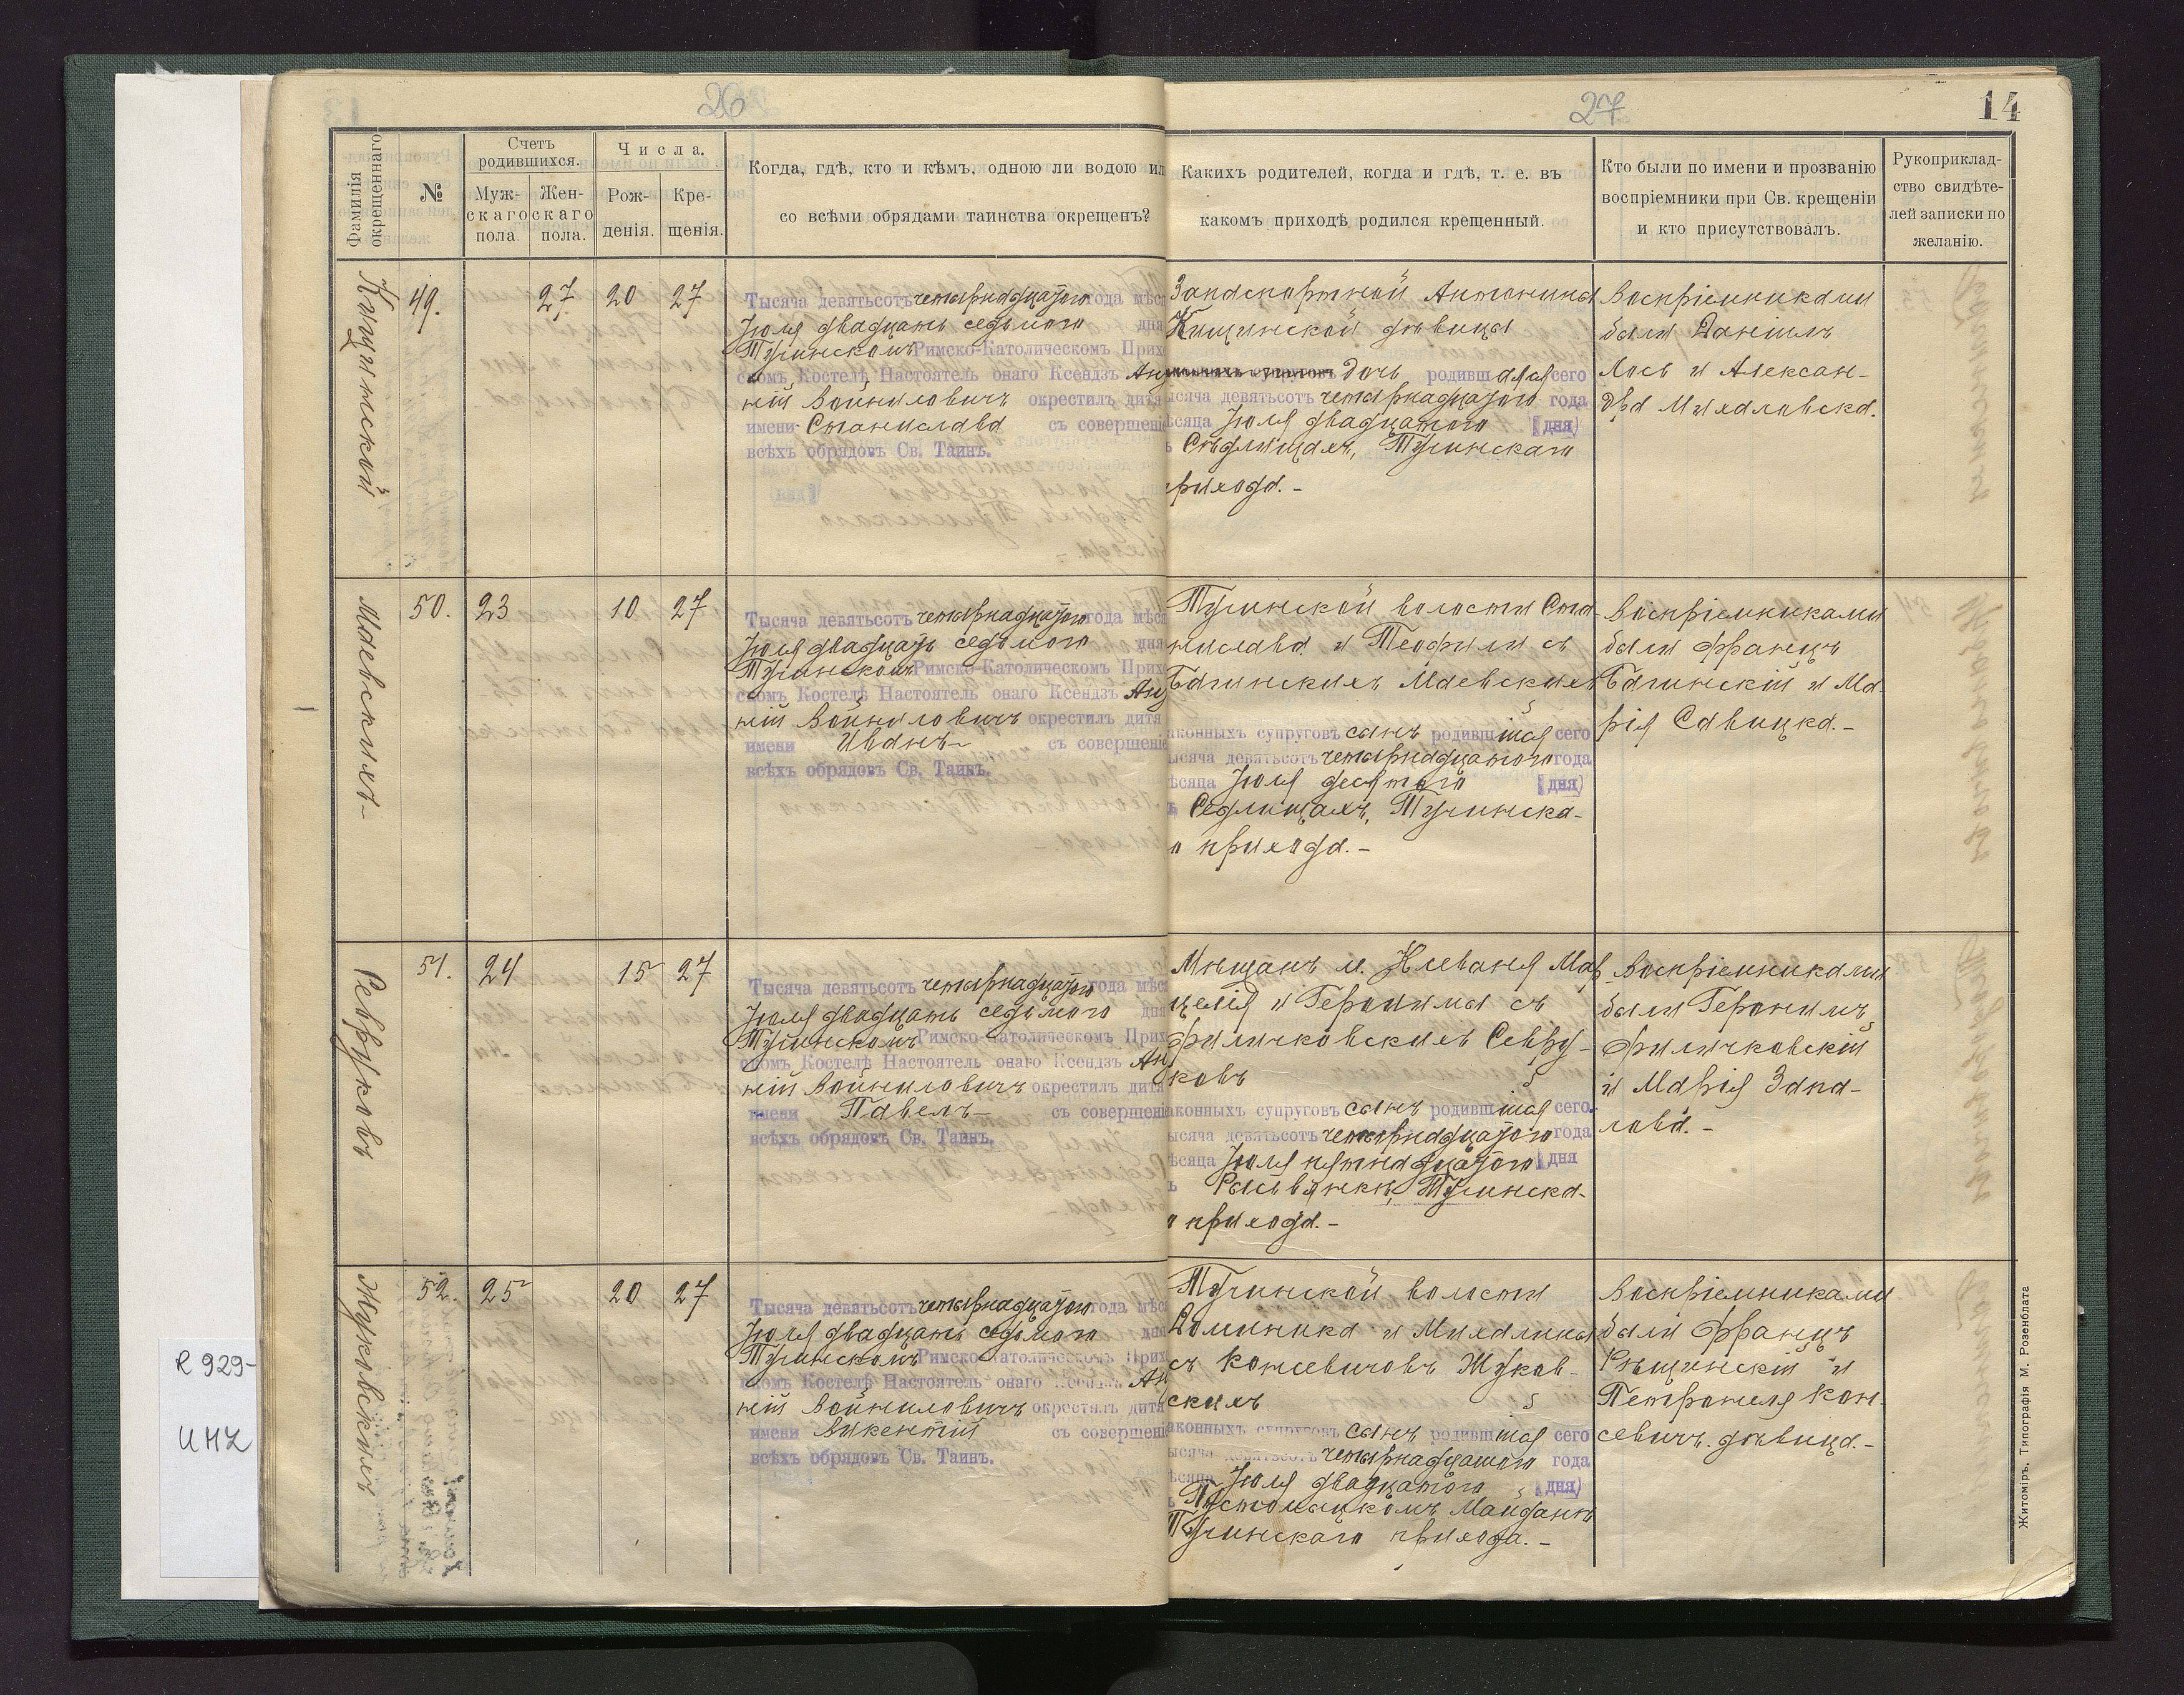 26
27
14
Фамилія окрещеннаго
№
Счетъ родившихся.
Муж-скаго пола.
Жен-скаго пола.
Числа.
Рож-денія.
Кре-щенія.
Когда, гдѣ, кто и кѣмъ, одною ли водою ил
со всѣми обрядами таинства окрещенъ?
Какихъ родителей, когда и гдѣ, т. е. въ
какомъ приходѣ родился крещенный.
Кто были по имени и прозванію
воспріемники при Св. крещеніи
и кто присутствовалъ.
Рукоприклад-
ство свидѣте-
лей записки по
желанію.
49.
27
20
27
Тысяча девятьсотъ четырнадцатого года мѣс
Іюля двадцать седьмого дня
Тучинскомъ Римско-Католическомъ Прих
скомъ Костелѣ Настоятель онаго Ксендзъ Ан
ній Войниловичъ окрестилъ дитя
имени Станислава съ совершені
всѣхъ обрядовъ Св. Таинъ.
Запаспортной Антонины
Кищинской дѣвицы
дочь родившаяся сего
ысяча девятьсотъ четырнадцатого года
ѣсяца Іюля двадцатого (дня)
ъ Сѣдлищахъ, Тучинскаго
прихода.-
Воспріемниками
были Даніилъ
Лось и Алексан-
дра Михаловска.
50.
23
10
27
Маевскихъ-
Тысяча девятьсотъ четырнадцатого года мѣс
Іюля двадцать седьмого дня
Тучинскомъ Римско-Католическомъ Прих
скомъ Костелѣ Настоятель онаго Ксендзъ Ан
ній Войниловичъ окрестилъ дитя
имени Иванъ- съ совершені
всѣхъ обрядовъ Св. Таинъ.
Тучинской волости Ста-
нислава и Теофили съ
Багинскихъ Маевскихъ
аконныхъ супруговъ сынъ родившійся сего
ысяча девятьсотъ четырнадцатого года
ѣсяца Іюля десятого (дня)
ъ Седлищахъ, Тучинска-
о прихода.-
Воспріемниками
были Францъ
Багинскій и Ма-
рія Савицка.-
51.
24
15
27
Севруковъ
Тысяча девятьсотъ четырнадцатого года мѣс
Іюля двадцать седьмого дня
Тучинскомъ Римско-Католическомъ Прих
скомъ Костелѣ Настоятель онаго Ксендзъ Ан
ній Войниловичъ окрестилъ дитя
имени Павелъ- съ совершені
всѣхъ обрядовъ Св. Таинъ.
Мѣщанъ м. Клеваня Мар
целія и Геронима съ
Филичковскихъ Севру-
ковъ
аконныхъ супруговъ сынъ родившійся сего
ысяча девятьсотъ четырнадцатого года
ѣсяца Іюля пятнадцатого дня
ъ Тучинска-
о прихода.-
Воспріемниками
были Геронимъ
Филичковскій
и Марія Запа-
лова.-
52.
25
20
27
Жуковскихъ
Тысяча девятьсотъ четырнадцатого года мѣс
Іюля двадцать седьмого дня
Тучинскомъ Римско-Католическомъ Прих
скомъ Костелѣ Настоятель онаго Ксендзъ Ан
ній Войниловичъ окрестилъ дитя
имени Викентій съ совершені
всѣхъ обрядовъ Св. Таинъ.
Тучинской волости
Доминика и Михалины
съ Консевичовъ Жуков-
скихъ
аконныхъ супруговъ сынъ родившійся сего
ысяча девятьсотъ четырнадцатого года
ѣсяца Іюля двадцатого (дня)
ъ Пустомыцкомъ Майданѣ
Тучинскаго прихода.-
Воспріемниками
были Францъ
Кищинскій и
Петронеля Кон-
севичъ дѣвица.-
Кищинской
Житоміръ, Типографія М. Розенблата
R 929-
UMZ